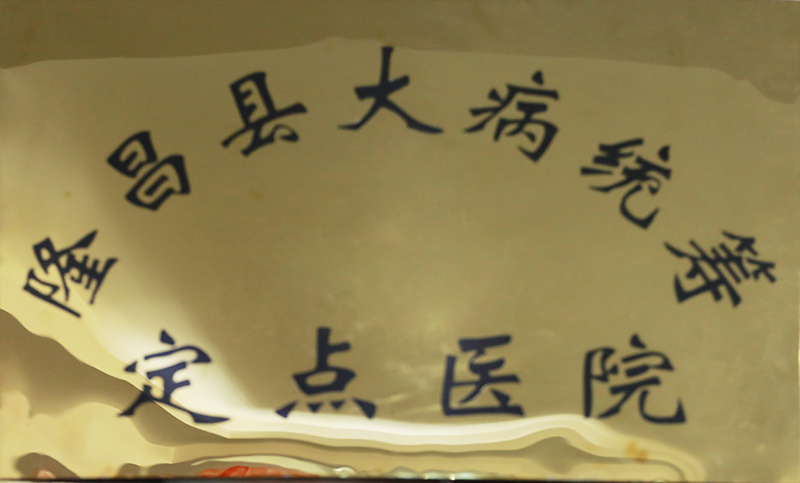 隆昌县大病统筹
定点医院